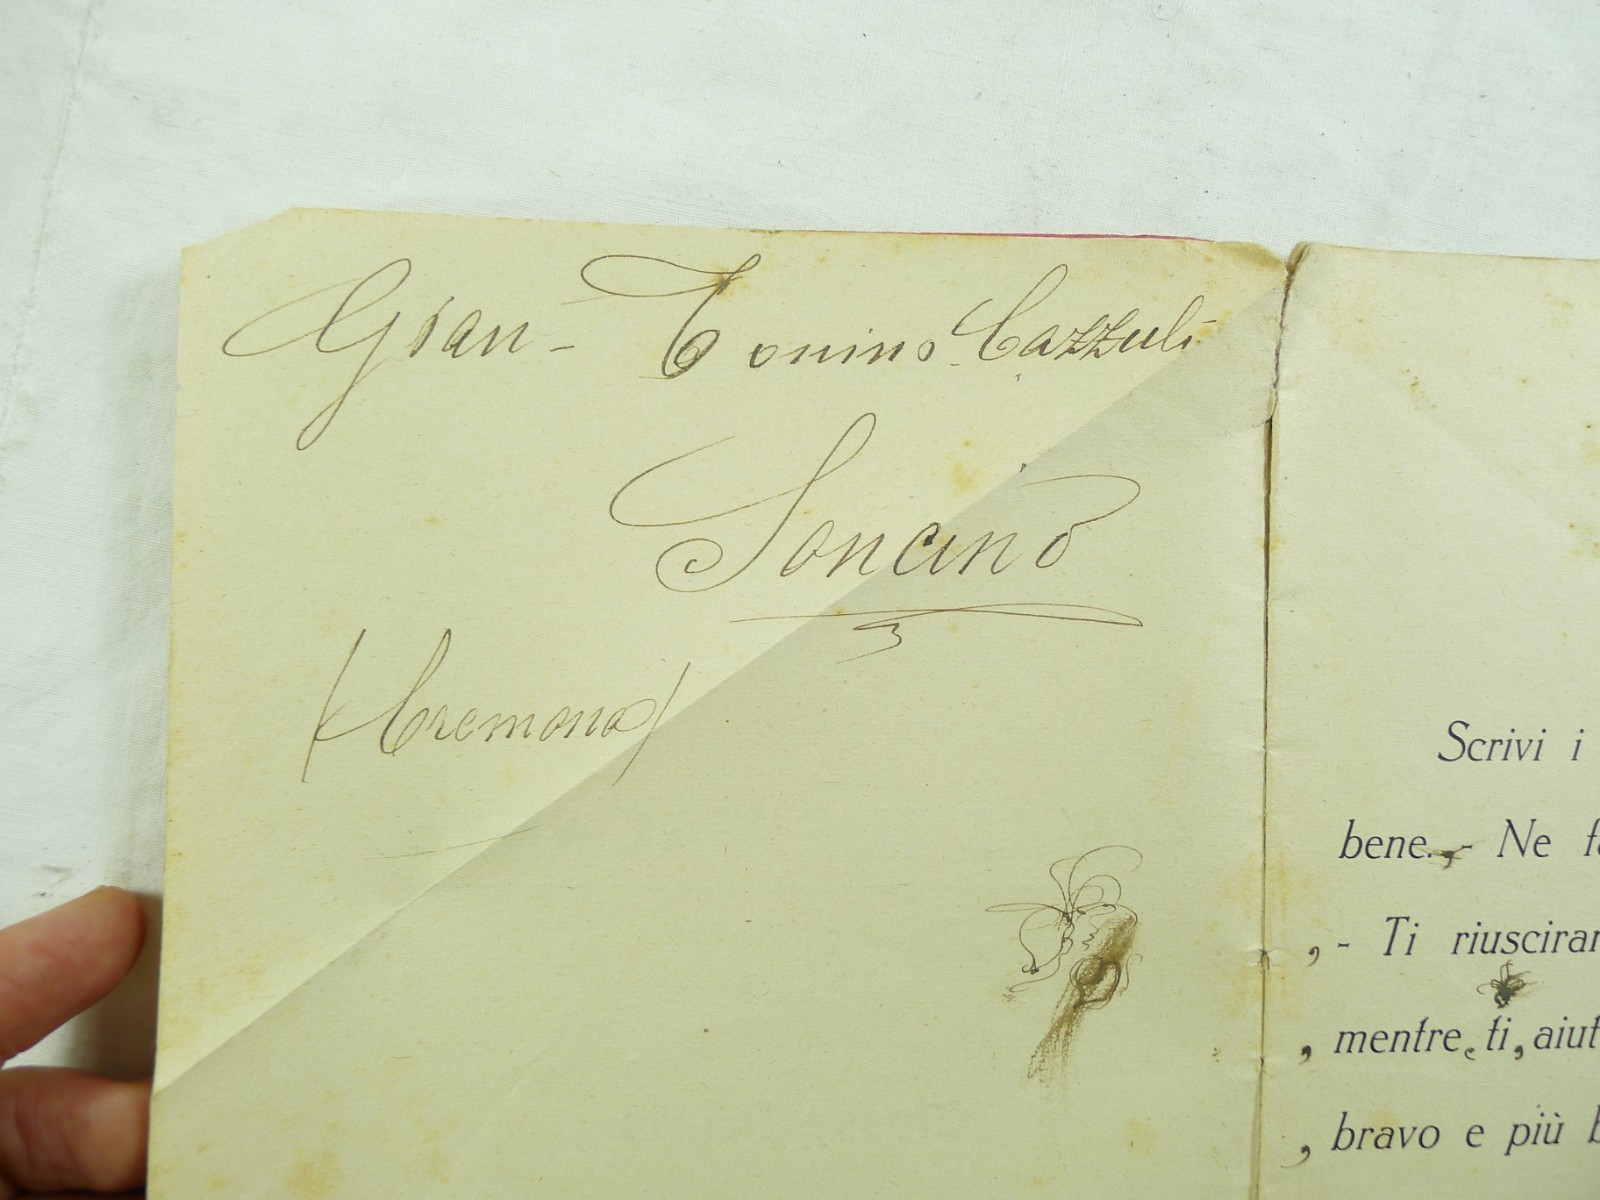 Gian-Tonino Cazzuli
Soncino
(Cremona)
Scrivi i
bene. - Ne
, - Ti
, mentre ti, aiut
, bravo e più